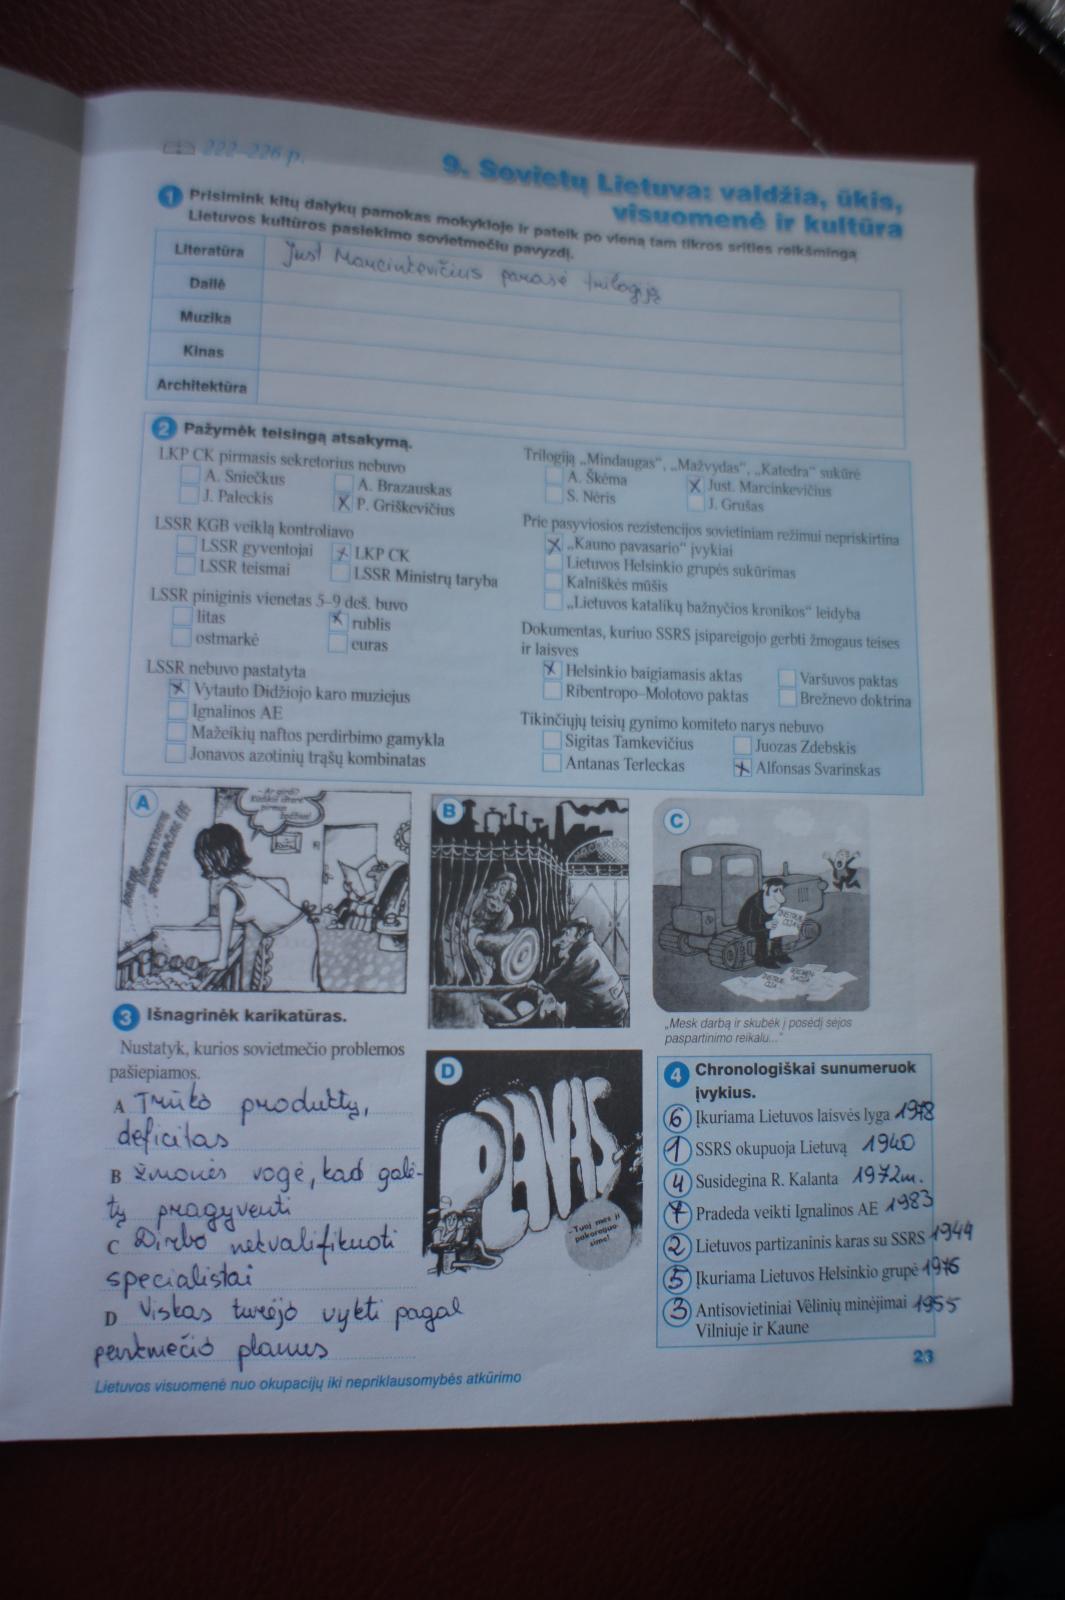 222–226 p.
9. Sovietų Lietuva: valdžia, ūkis,
visuomenė ir kultūra
1 Prisimink kitų dalykų pamokas mokykloje ir pateik po vieną tam tikros srities reikšmingą
Lietuvos kultūros pasiekimo sovietmečiu pavyzdį.
Literatūra Just Marcinkevičius parašė trilogiją
Dailė
Muzika
Kinas
Architektūra
2 Pažymėk teisingą atsakymą.
LKP CK pirmasis sekretorius nebuvo
A. Sniečkus A. Brazauskas
J. Paleckis P. Griškevičius
LSSR KGB veiklą kontroliavo
LSSR gyventojai LKP CK
LSSR teismai LSSR Ministrų taryba
LSSR piniginis vienetas 5–9 deš. buvo
litas rublis
ostmarkė euras
LSSR nebuvo pastatyta
Vytauto Didžiojo karo muziejus
Ignalinos AE
Mažeikių naftos perdirbimo gamykla
Jonavos azotinių trąšų kombinatas
Trilogiją „Mindaugas“, „Mažvydas“, „Katedra“ sukūrė
A. Škėma Just. Marcinkevičius
S. Nėris J. Grušas
Prie pasyviosios rezistencijos sovietiniam režimui nepriskirtina
„Kauno pavasario“ įvykiai
Lietuvos Helsinkio grupės sukūrimas
Kalniškės mūšis
„Lietuvos katalikų bažnyčios kronikos“ leidyba
Dokumentas, kuriuo SSRS įsipareigojo gerbti žmogaus teises
ir laisves
Helsinkio baigiamasis aktas Varšuvos paktas
Ribentropo–Molotovo paktas Brežnevo doktrina
Tikinčiųjų teisių gynimo komiteto narys nebuvo
Sigitas Tamkevičius Juozas Zdebskis
Antanas Terleckas Alfonsas Svarinskas
A
- Ar girdi?
B
C
„Mesk darbą ir skubėk į posėdį sėjos
paspartinimo reikalu...“
3 Išnagrinėk karikatūras.
Nustatyk, kurios sovietmečio problemos
pašiepiamos.
A Trūko produktų,
deficitas
B žmonės vogė, kad galė-
tų pragyventi
C Dirbo nekvalifikuoti
specialistai
D Viskas turėjo vykti pagal
penkmečio planus
D
PLANAS
- Tuoj mes jį
pakoreguo-
sime!
4 Chronologiškai sunumeruok
įvykius.
6 Įkuriama Lietuvos laisvės lyga 1978
1 SSRS okupuoja Lietuvą 1940
4 Susidegina R. Kalanta 1972m.
7 Pradeda veikti Ignalinos AE 1983
2 Lietuvos partizaninis karas su SSRS 1944
5 Įkuriama Lietuvos Helsinkio grupė 1976
3 Antisovietiniai Vėlinių minėjimai 1955
Vilniuje ir Kaune
23
Lietuvos visuomenė nuo okupacijų iki nepriklausomybės atkūrimo